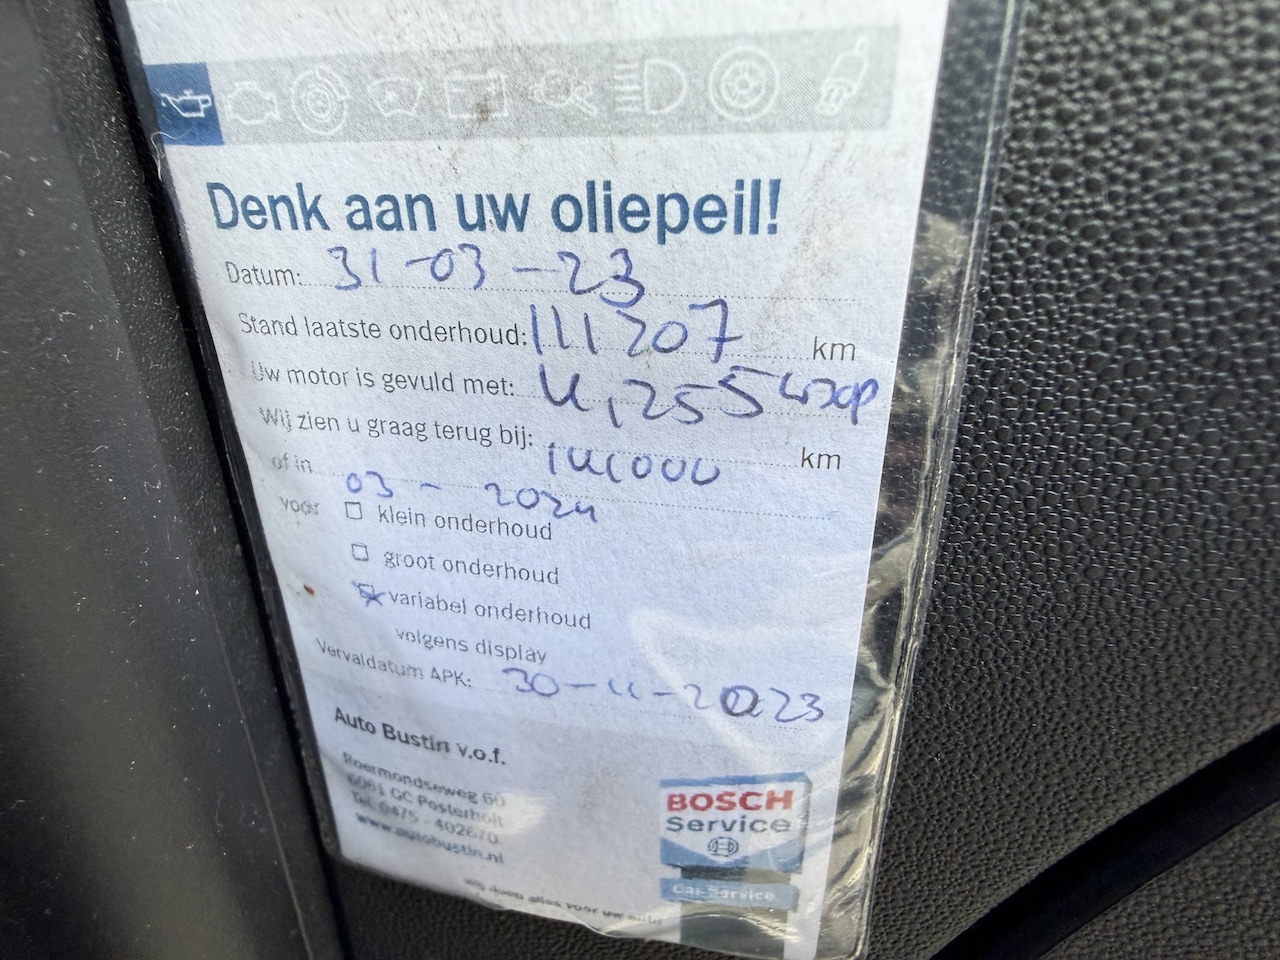 Denk aan uw oliepeil!
Datum: 31-03-23
Stand laatste onderhoud: 111207 km
Uw motor is gevuld met: 4,25 5w30p
Wij zien u graag terug bij: 141000 km
of in 03 - 2024
voor klein onderhoud
groot onderhoud
variabel onderhoud
volgens display
Vervaldatum APK: 30-11-2023
Auto Bustin v.o.f.
Roermondseweg 60
6061 GC Posterholt
Tel. 0475 - 402670
www.autobustin.nl
BOSCH
Service
Car-Service
wij doen alles voor uw auto